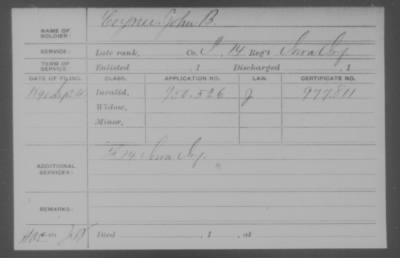 NAME OF SOLDIER: John B.
SERVICE: Late rank, Co. I, 14 Reg't Iowa Inf
TERM OF SERVICE: Enlisted , 1 Discharged , 1
DATE OF FILING. CLASS. APPLICATION NO. LAW. CERTIFICATE NO.
Invalid, 950.526 J 977.811
Widow,
Minor,
ADDITIONAL SERVICES: 14 Iowa Inf.
REMARKS:
Died , 1 , at